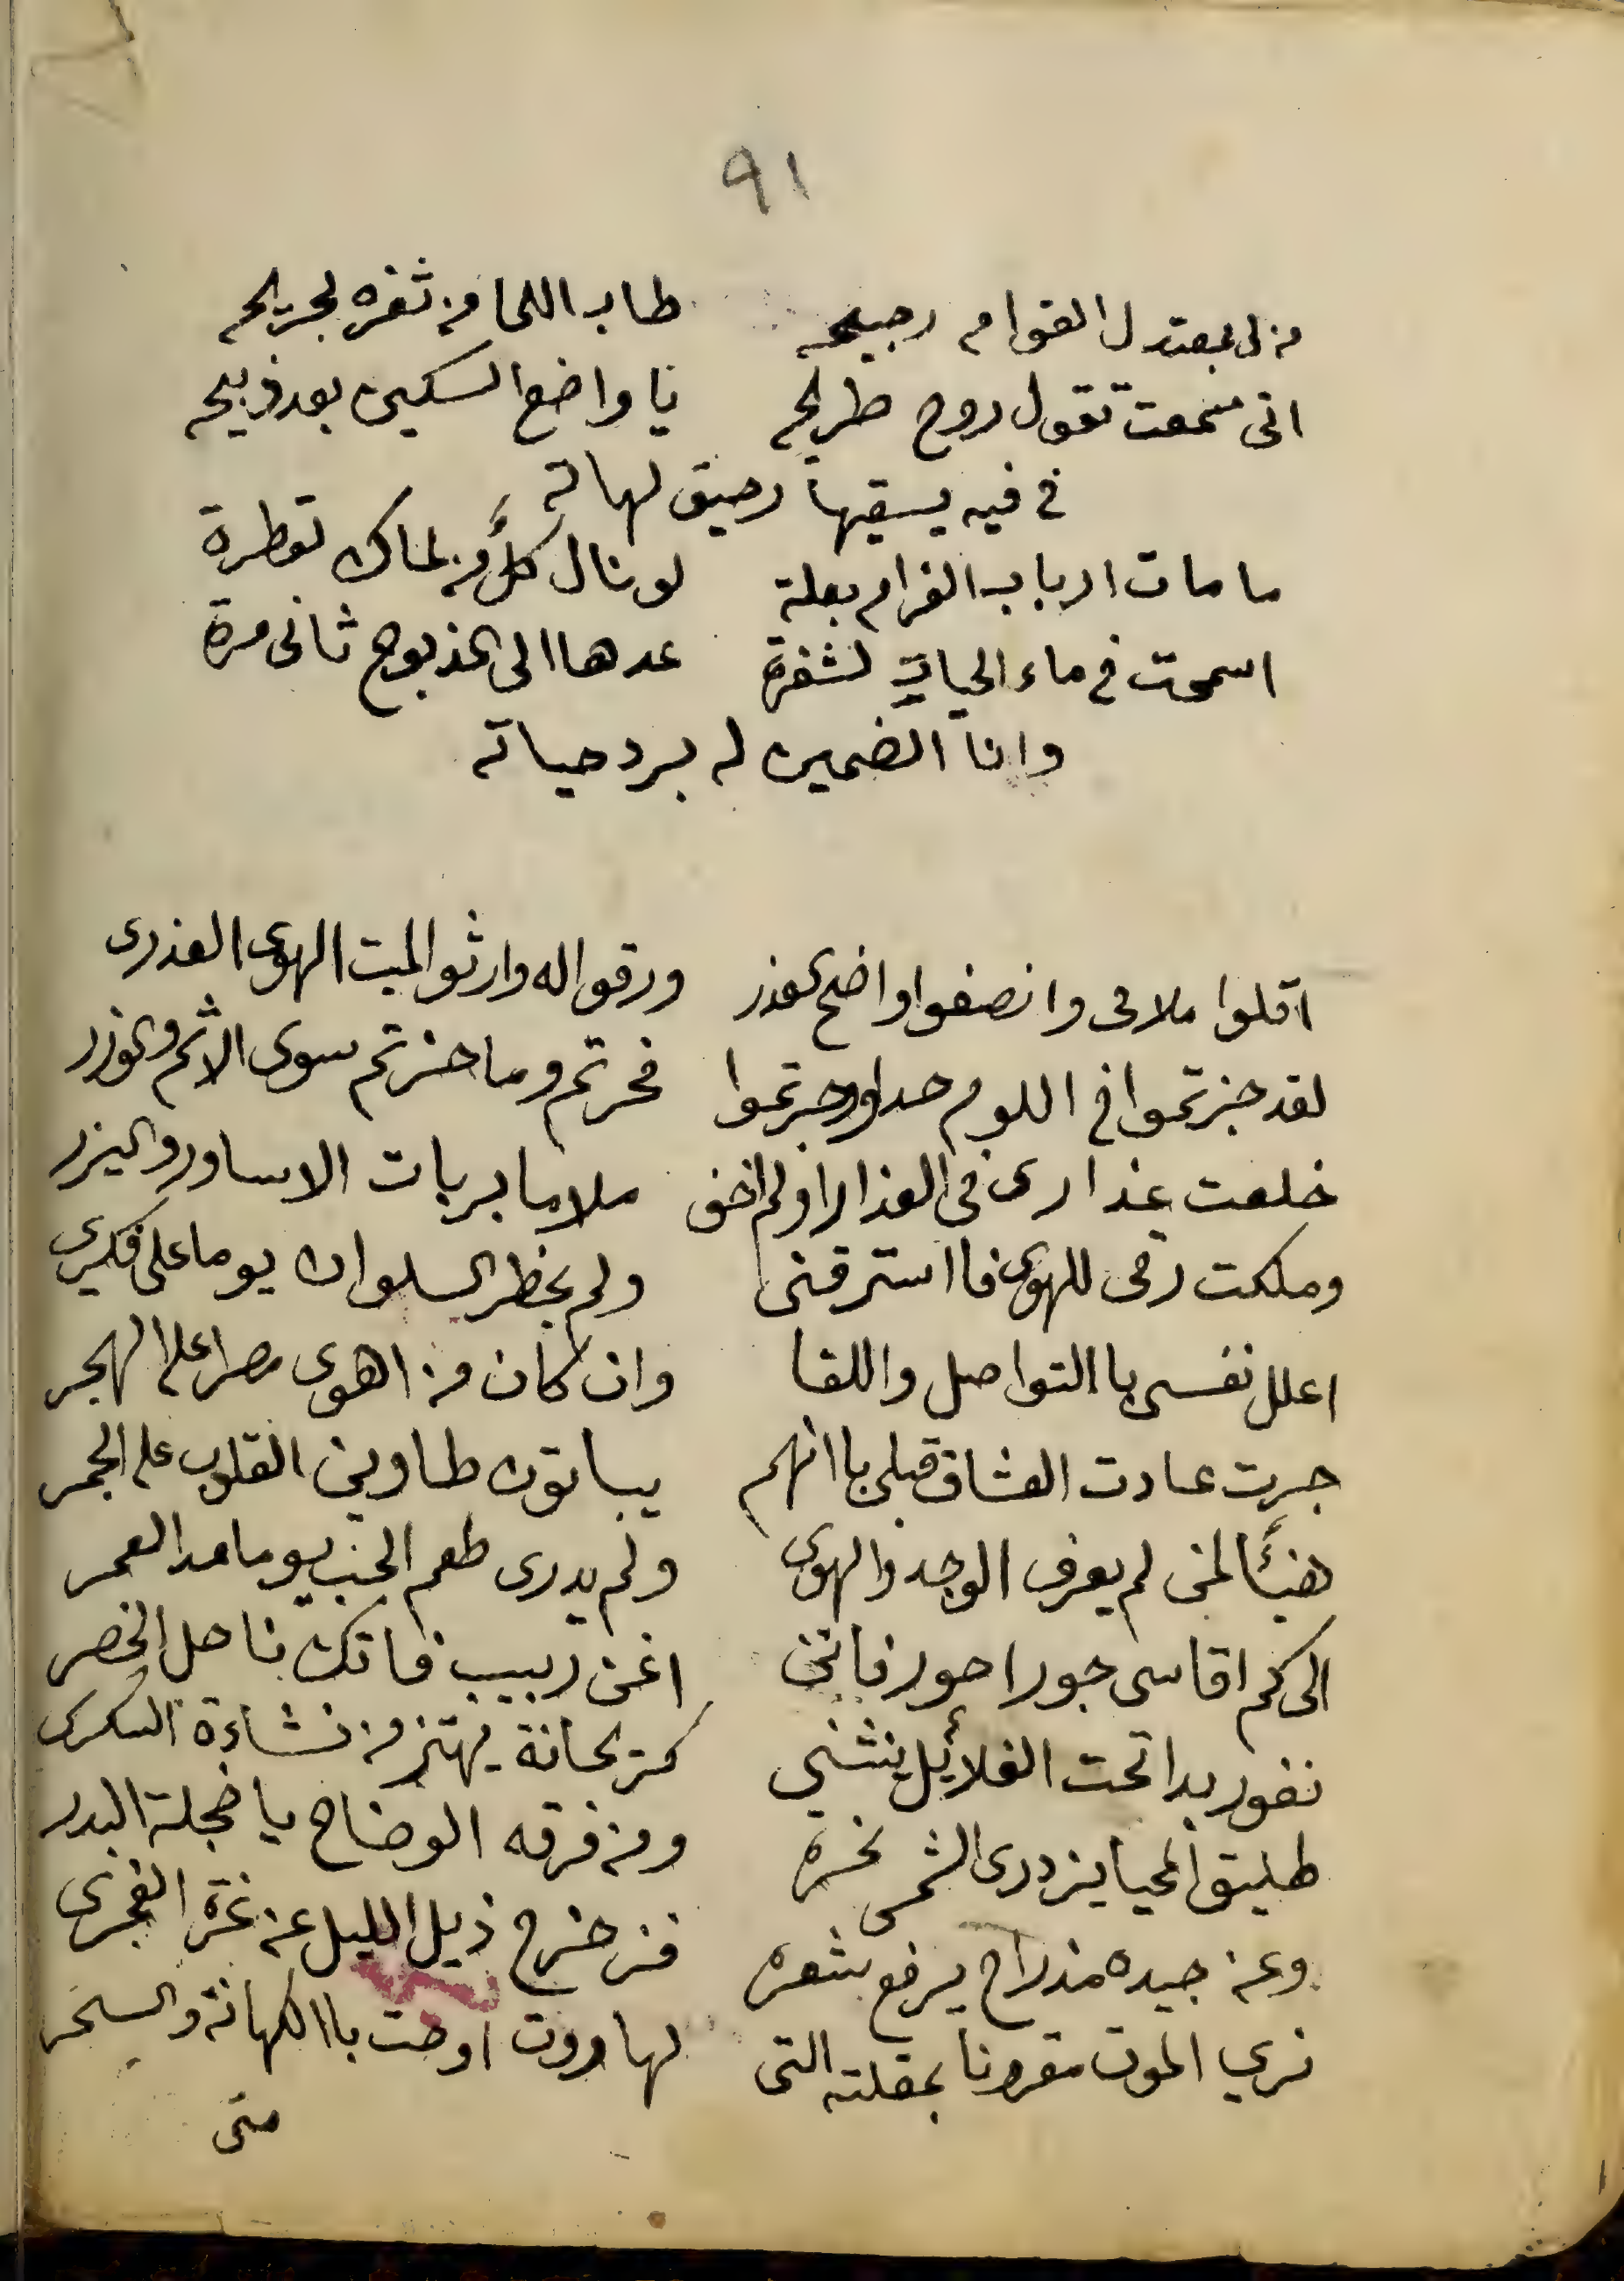 ٩١
من لى بمعتدل القوام رجيحه طاب اللما من ثغره لجريحه
انى سمعت تقول روح طريحه يا واضع السكين بعد ذبيحه
في فيه يسقيها رحيق لهاته
ما مات ارباب الغرام بعلة لو نال كلٌ من لماك تقطرة
اسمحت في ماء الحيات لشفرة عدها الى المذبوح ثانى مرة
وانا الضمين له برد حياته
اقلوا ملامى وانصفوا واضح العذر ورقوا له وارثوا لميت الهوى العذرى
لقد جزتموا في اللوم حدا وجرتموا فحرتم وما حزتم سوى الاثم والوزر
خلعت عذارى فى العذارا ولم اخف ملاما بربات الاساور والیزر
وملكت رقى للهوى فااسترقنى ولم يخطر السلوان يوما على فكرى
اعلل نفسى باالتواصل واللقا وان كان من اهوى مصرا على الهجر
جرت عادت العشاق قبلى باانهم يباتون طاوين القلوب على الجمر
هنيئًا لمن لم يعرف الوجد والهوى ولم يدرى طعم الحب يوما مدا العمر
الى كم اقاسى جور احور فاتن اغن ربيب فاتك ناحل الخصر
نفور بدا تحت الغلائل ينثني كريحانة يهتز من نشاءة السكرى
طليق المحيا يزدرى الشمس نحره ومن فرقه الوضاح يا خجلة البدر
وعن جيده مذ راح يرفع شعره فزحزح ذيل الليل عن غرة الفجرى
نري الموت مقرونا بمقلته التى لهاروت اوحت باالكهانة والسحر
متى